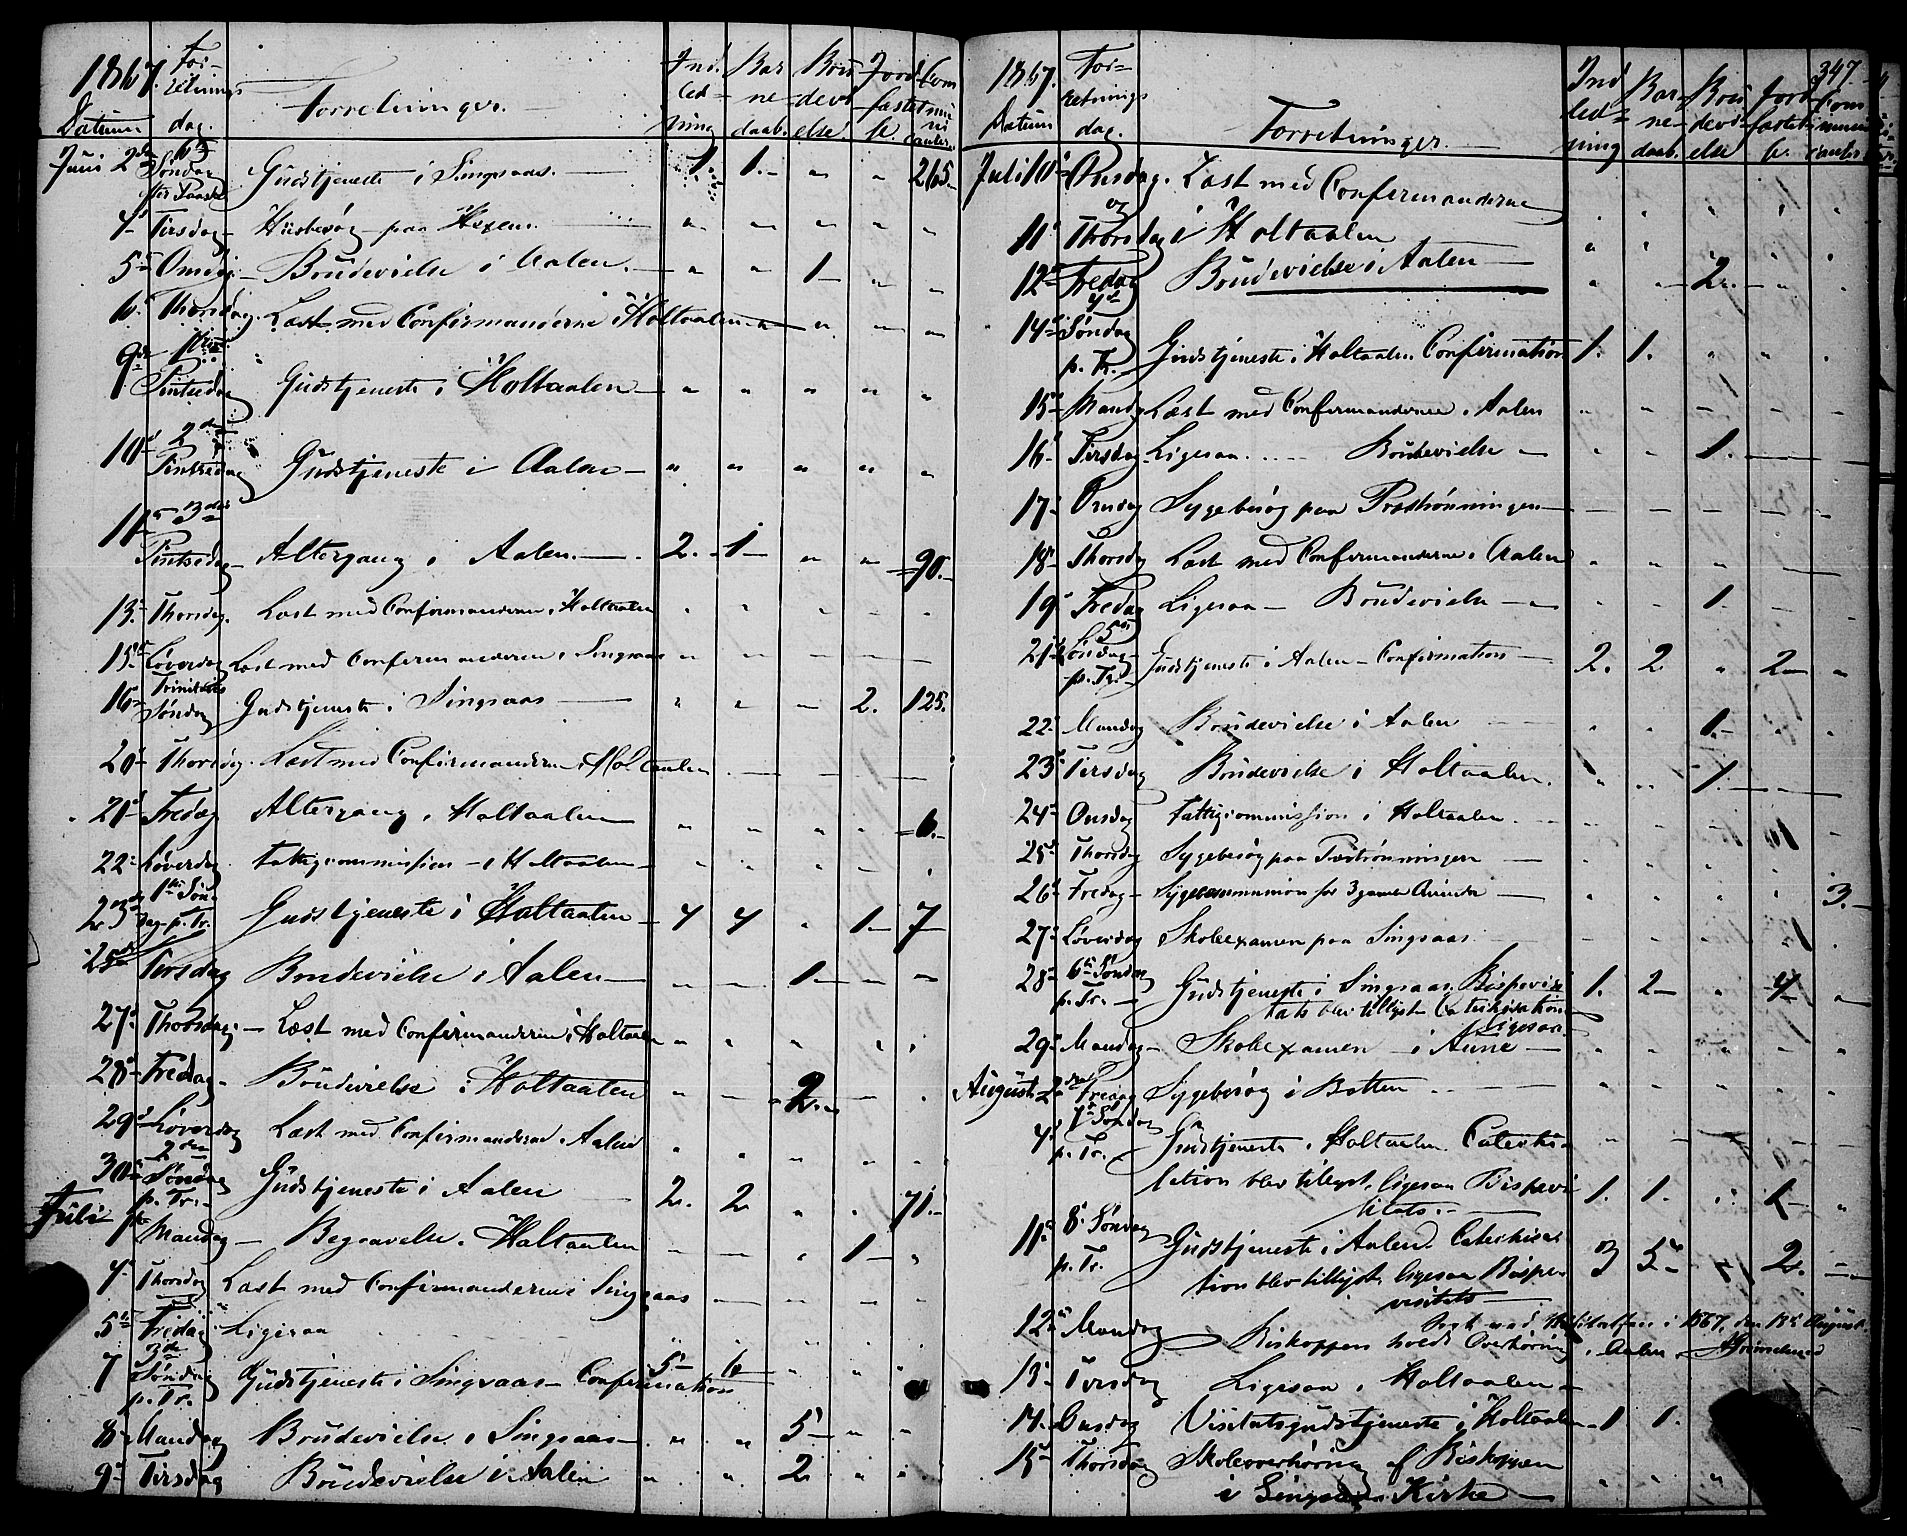 1867. For- Ind Bar Brü Jord Com
retnings Forretninger. led- ne- devi- fæstel- mu
Datum dag. ning daab. else se. ni
canter.
Juni 2den 6te
Søndag Gudstjeneste i Singsaas. 1. 1. " " 265.
fter Paaske
4de Tirsdag Huusbesøg paa Hexem. " " " " "
5te Onsdag. Brüdevielse i Aalen. " " 1 " "
6te Thorsdag. Læst med Confirmanderne i Holtaalen " " " "
9de 1ste
Pintsedag Gudstjeneste i Holtaalen " " " " "
10de 2den
Pintsedag Gudstjeneste i Aalen " " " " "
11te 3die
Pintsedag Altergang i Aalen. 2. 1 " " 90.
13. Thorsdag. Læst med Confirmanderne i Holtaalen " " " " "
15. Løverdag Læst med Confirmanderne i Singsaas " " " " "
16. Trinitatis
Søndag Gudstjeneste i Singsaas " " " 2. 125.
20 Thorsdag. Læst med Confirmanderne i Holtaalen
21 Fredag Altergang i Holtaalen " " " " 6.
22 Løverdag Fattigcommission i Holtaalen " " " " "
23de 1ste Søn-
dag p. Tr. Gudstjeneste i Holtaalen 4 4 " 1 7
25de Tirsdag Brudevielse i Aalen " " 1 " "
27. Thorsdag. Læst med Confirmanderne i Holtaalen " " " " "
28 Fredag. Brüdevielse i Holtaalen " " 2. " "
29 Løverdag Læst med Confirmanderne i Aalen " " " " "
30 2den
Søndag Gudstjeneste i Aalen 2. 2 " " 71.
p. Tr.
Juli 1ste Mandag Begravelse i Holtaalen " " " 1 "
4. Thorsdag Læst med Confirmanderne i Singsaas " " "
5te Fredag Ligesaa " " " " "
7 3die
Søndag Gudstjeneste i Singsaas Confirmation 5 6 " " "
p. Tr.
8 Mandag Brüdevielse i Singsaas " " 5 " "
9 Tirsdag Brüdevielse i Aalen " " 2 " "
347.
1867. For- Ind Bar- Brü- Jord- Com
retnings Forretninger. led- ne- devi- fæstel- muni
Datum dag. ning daab. else se. canter
Juli 10 Onsdag. Læst med Confirmanderne
og
11 Thorsdag i Holtaalen
12 Fredag Brüdevielse i Aalen " " 2. " "
14 4de
Søndag Gudstjeneste i Holtaalen. Confirmation 1. 1. " " "
p. Tr.
15 Mandag Læst med Confirmanderne i Aalen " " " " "
16 Tirsdag Ligesaa Brüdevielse " " 1.
17 Onsdag Sygebesøg paa Præstrønningen
18 Thorsdag Læst med Confirmanderne i Aalen " " " " "
19 Fredag Ligesaa Brüdevielse " " 1. " "
21 5te
Søndag Gudstjeneste i Aalen Confirmation 2. 2 " 2 "
p. Tr.
22 Mandag Brüdevielse i Aalen " " 1. " "
23 Tirsdag Brüdevielse i Holtaalen. " " 1.
24 Onsdag Fattigcommission i Holtaalen
25 Thorsdag Sygebesøg paa Præstrønningen
26 Fredag Sygecommunion for 3 gamle Qvinder " " " " 3.
27 Løverdag Skoleexamen paa Singsaas
28 6te Søndag
p. Tr. Gudstjeneste i Singsaas. Bispevisi 1. 2 " 4 "
tats blev tillyst. Catechisation
Ligesaa
29 Mandag Skoleexamen i Aune " " " " "
August 2den Fredag Sygebesøg i Botten " " " " "
4. 7de Søndag
p. Tr. Gudstjeneste i Holtaalen. Catechi-
sation blev tillyst, ligesaa Bispevi 1. 1. " 1 "
sitats.
11 8. Søndag
p. Tr. Gudstjeneste i Aalen. Catechisa- 3 5 " 2. "
tion blev tillyst, ligesaa Bispe-
visitats
12 Mandag Biskoppen holdt Overhøring i Aalen
13 Tirsdag Ligesaa i Holtaalen
14. Onsdag Visitatsgudstjeneste i Holtaalen 1. 1.
15 Thorsdag Skoleoverhøring af Biskoppen
i Singsaas Kirke